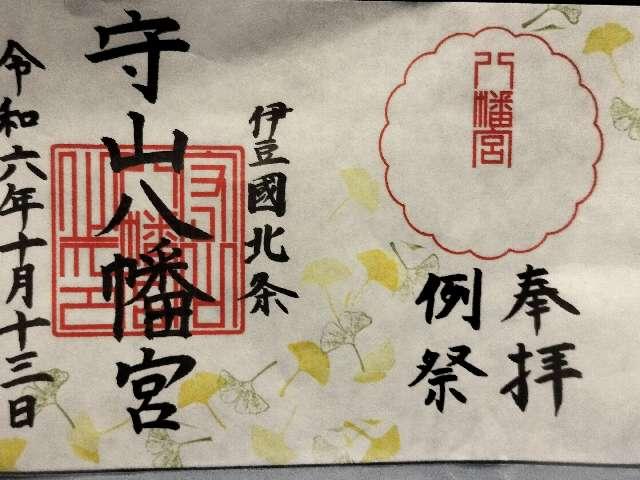 奉拝
例祭
八幡宮
伊豆國北条
守山八幡宮
令和六年十月十三日